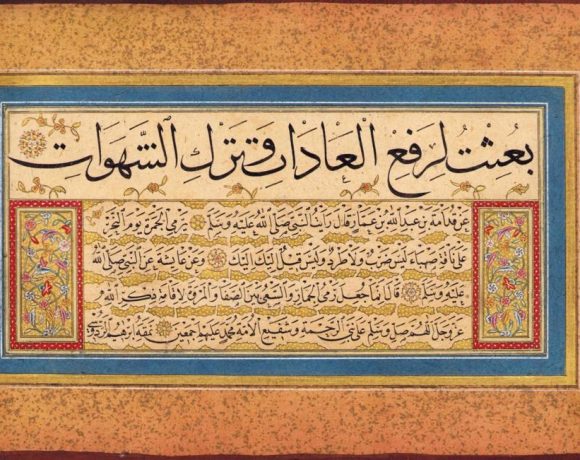 بُعِثْتُ لِرَفْعِ الْعَادَاتِ وَتَرْكِ الشَّهَوَاتِ
عَنْ قُدَامَةَ بْنِ عَبْدِ اللّٰهِ بْنِ عَمَّارٍ قَالَ رَأَيْتُ النَّبِيَّ صَلَّى اللّٰهُ عَلَيْهِ وَسَلَّمَ يَرْمِي الْجَمْرَةَ يَوْمَ النَّحْرِ
عَلَى نَاقَةٍ صَهْبَاءَ لَيْسَ ضَرْبٌ وَلَا طَرْدٌ وَلَيْسَ قِيلُ إِلَيْكَ إِلَيْكَ وَعَنْ عَائِشَةَ عَنِ النَّبِيِّ صَلَّى اللّٰهُ
عَلَيْهِ وَسَلَّمَ قَالَ إِنَّمَا جُعِلَ رَمْيُ الْجِمَارِ وَالسَّعْيُ بَيْنَ الصَّفَا وَالْمَرْوَةِ لِإِقَامَةِ ذِكْرِ اللّٰهِ
عَلَى نَبِيِّ الرَّحْمَةِ وَشَفِيعِ الْأُمَّةِ مُحَمَّدٍ